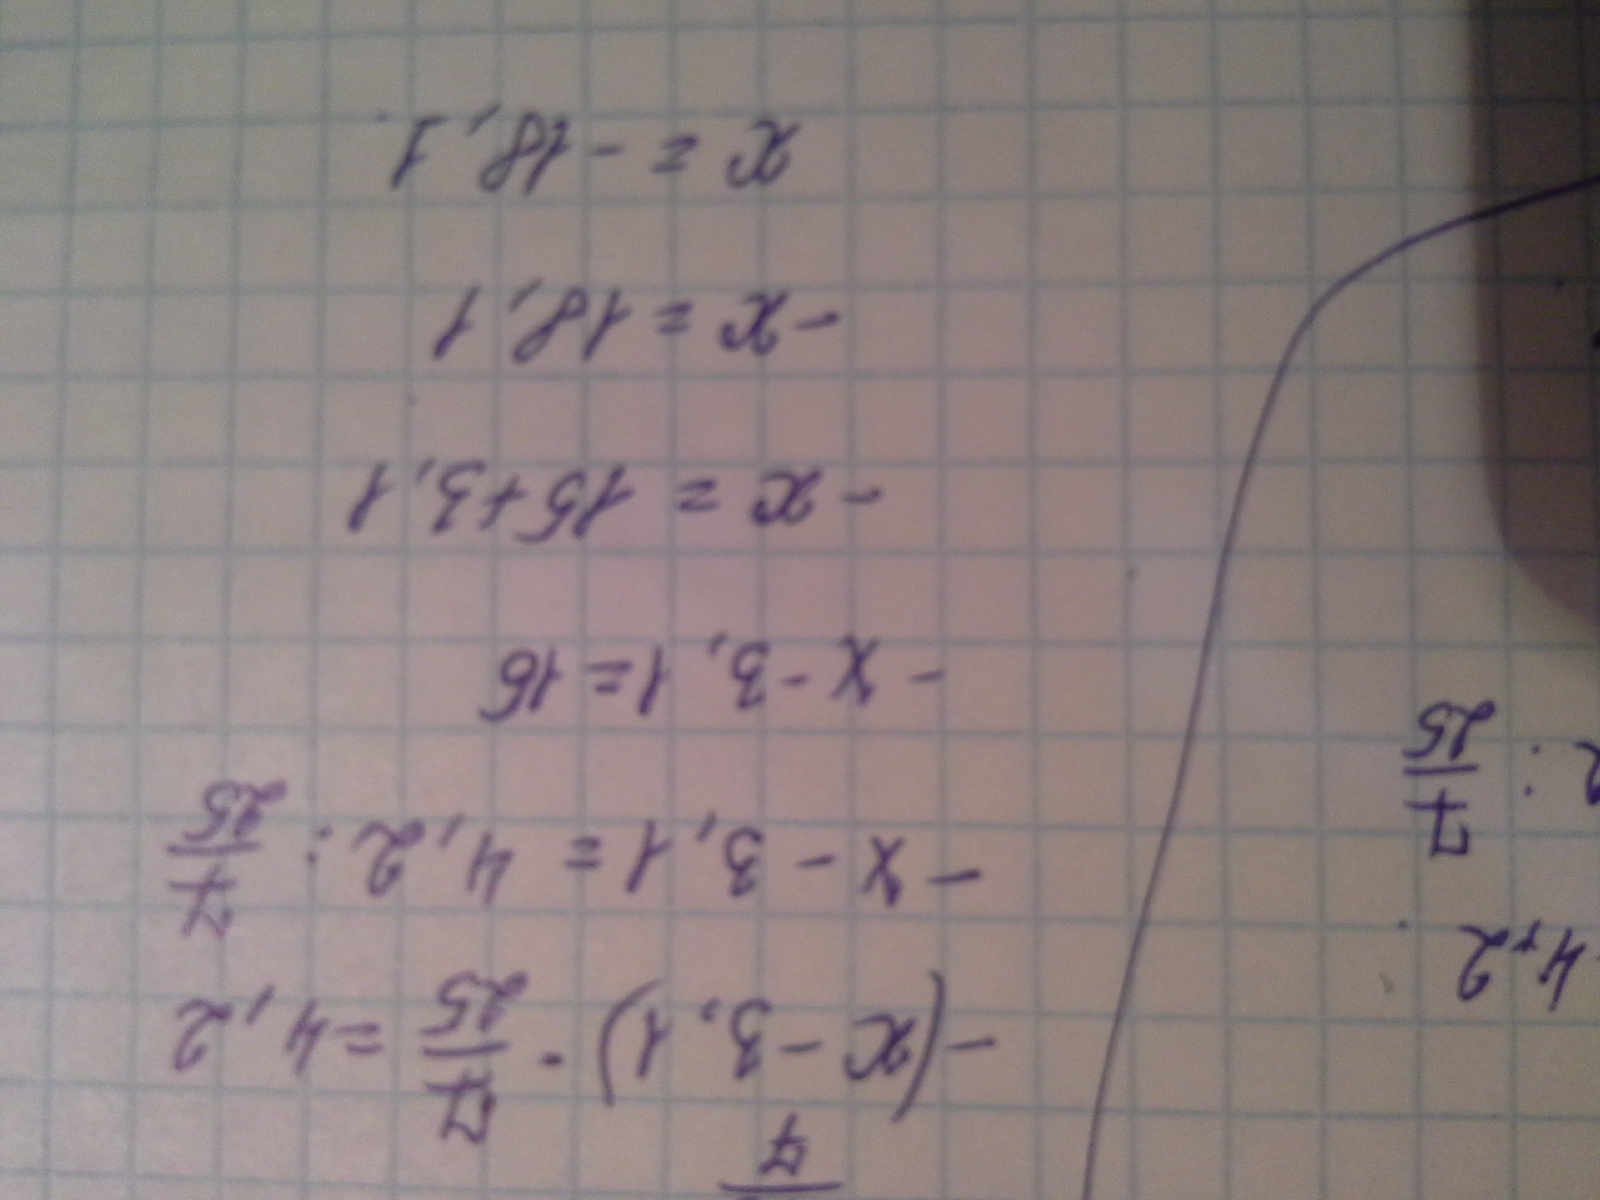 7
-(x-3,1)·7/25=4,2
-x-3,1=4,2:7/25
-x-3,1=16
-x=15+3,1
-x=18,1
x=-18,1
4,2
:7/25